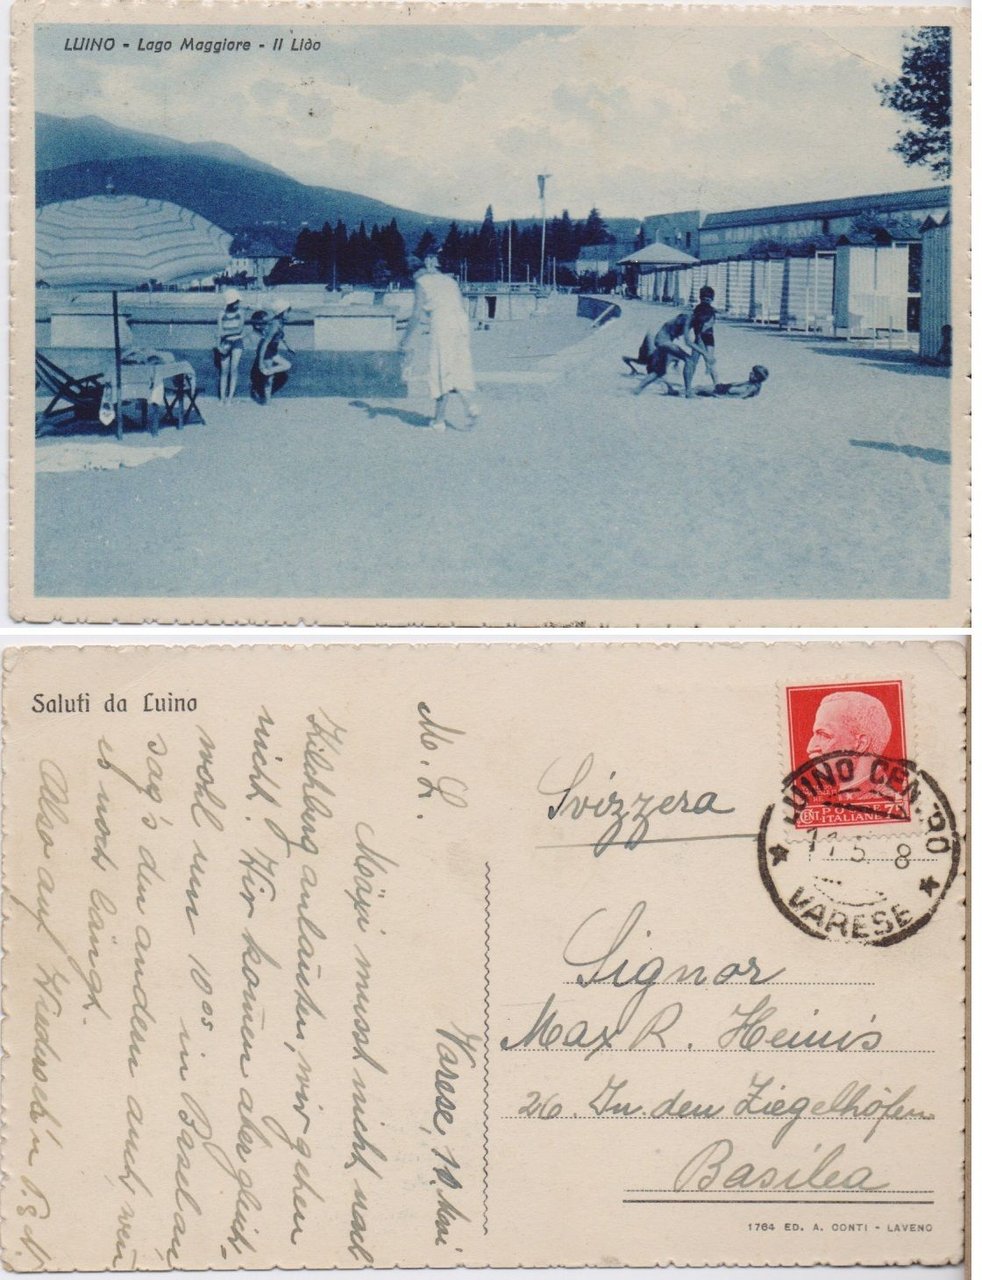 LUINO - Lago Maggiore - Il Lido
Saluti da Luino
Varese, 10. Mai
M. L.
Mäxi musst nicht nach
Kilchberg anläuten, wir gehen
nicht. Wir komen aber gleich-
wohl um 10⁰⁵ in Basel an
sag's den andern auch, wen
es noch längt.
Also auf Wiederseh'n
Svizzera
Signor
Max R. Heinis
26. In den Ziegelhöfen
Basilea
CENT. POSTE 75
ITALIANE
LUINO CENTRO
11 5 8
VARESE
1764 ED. A. CONTI - LAVENO